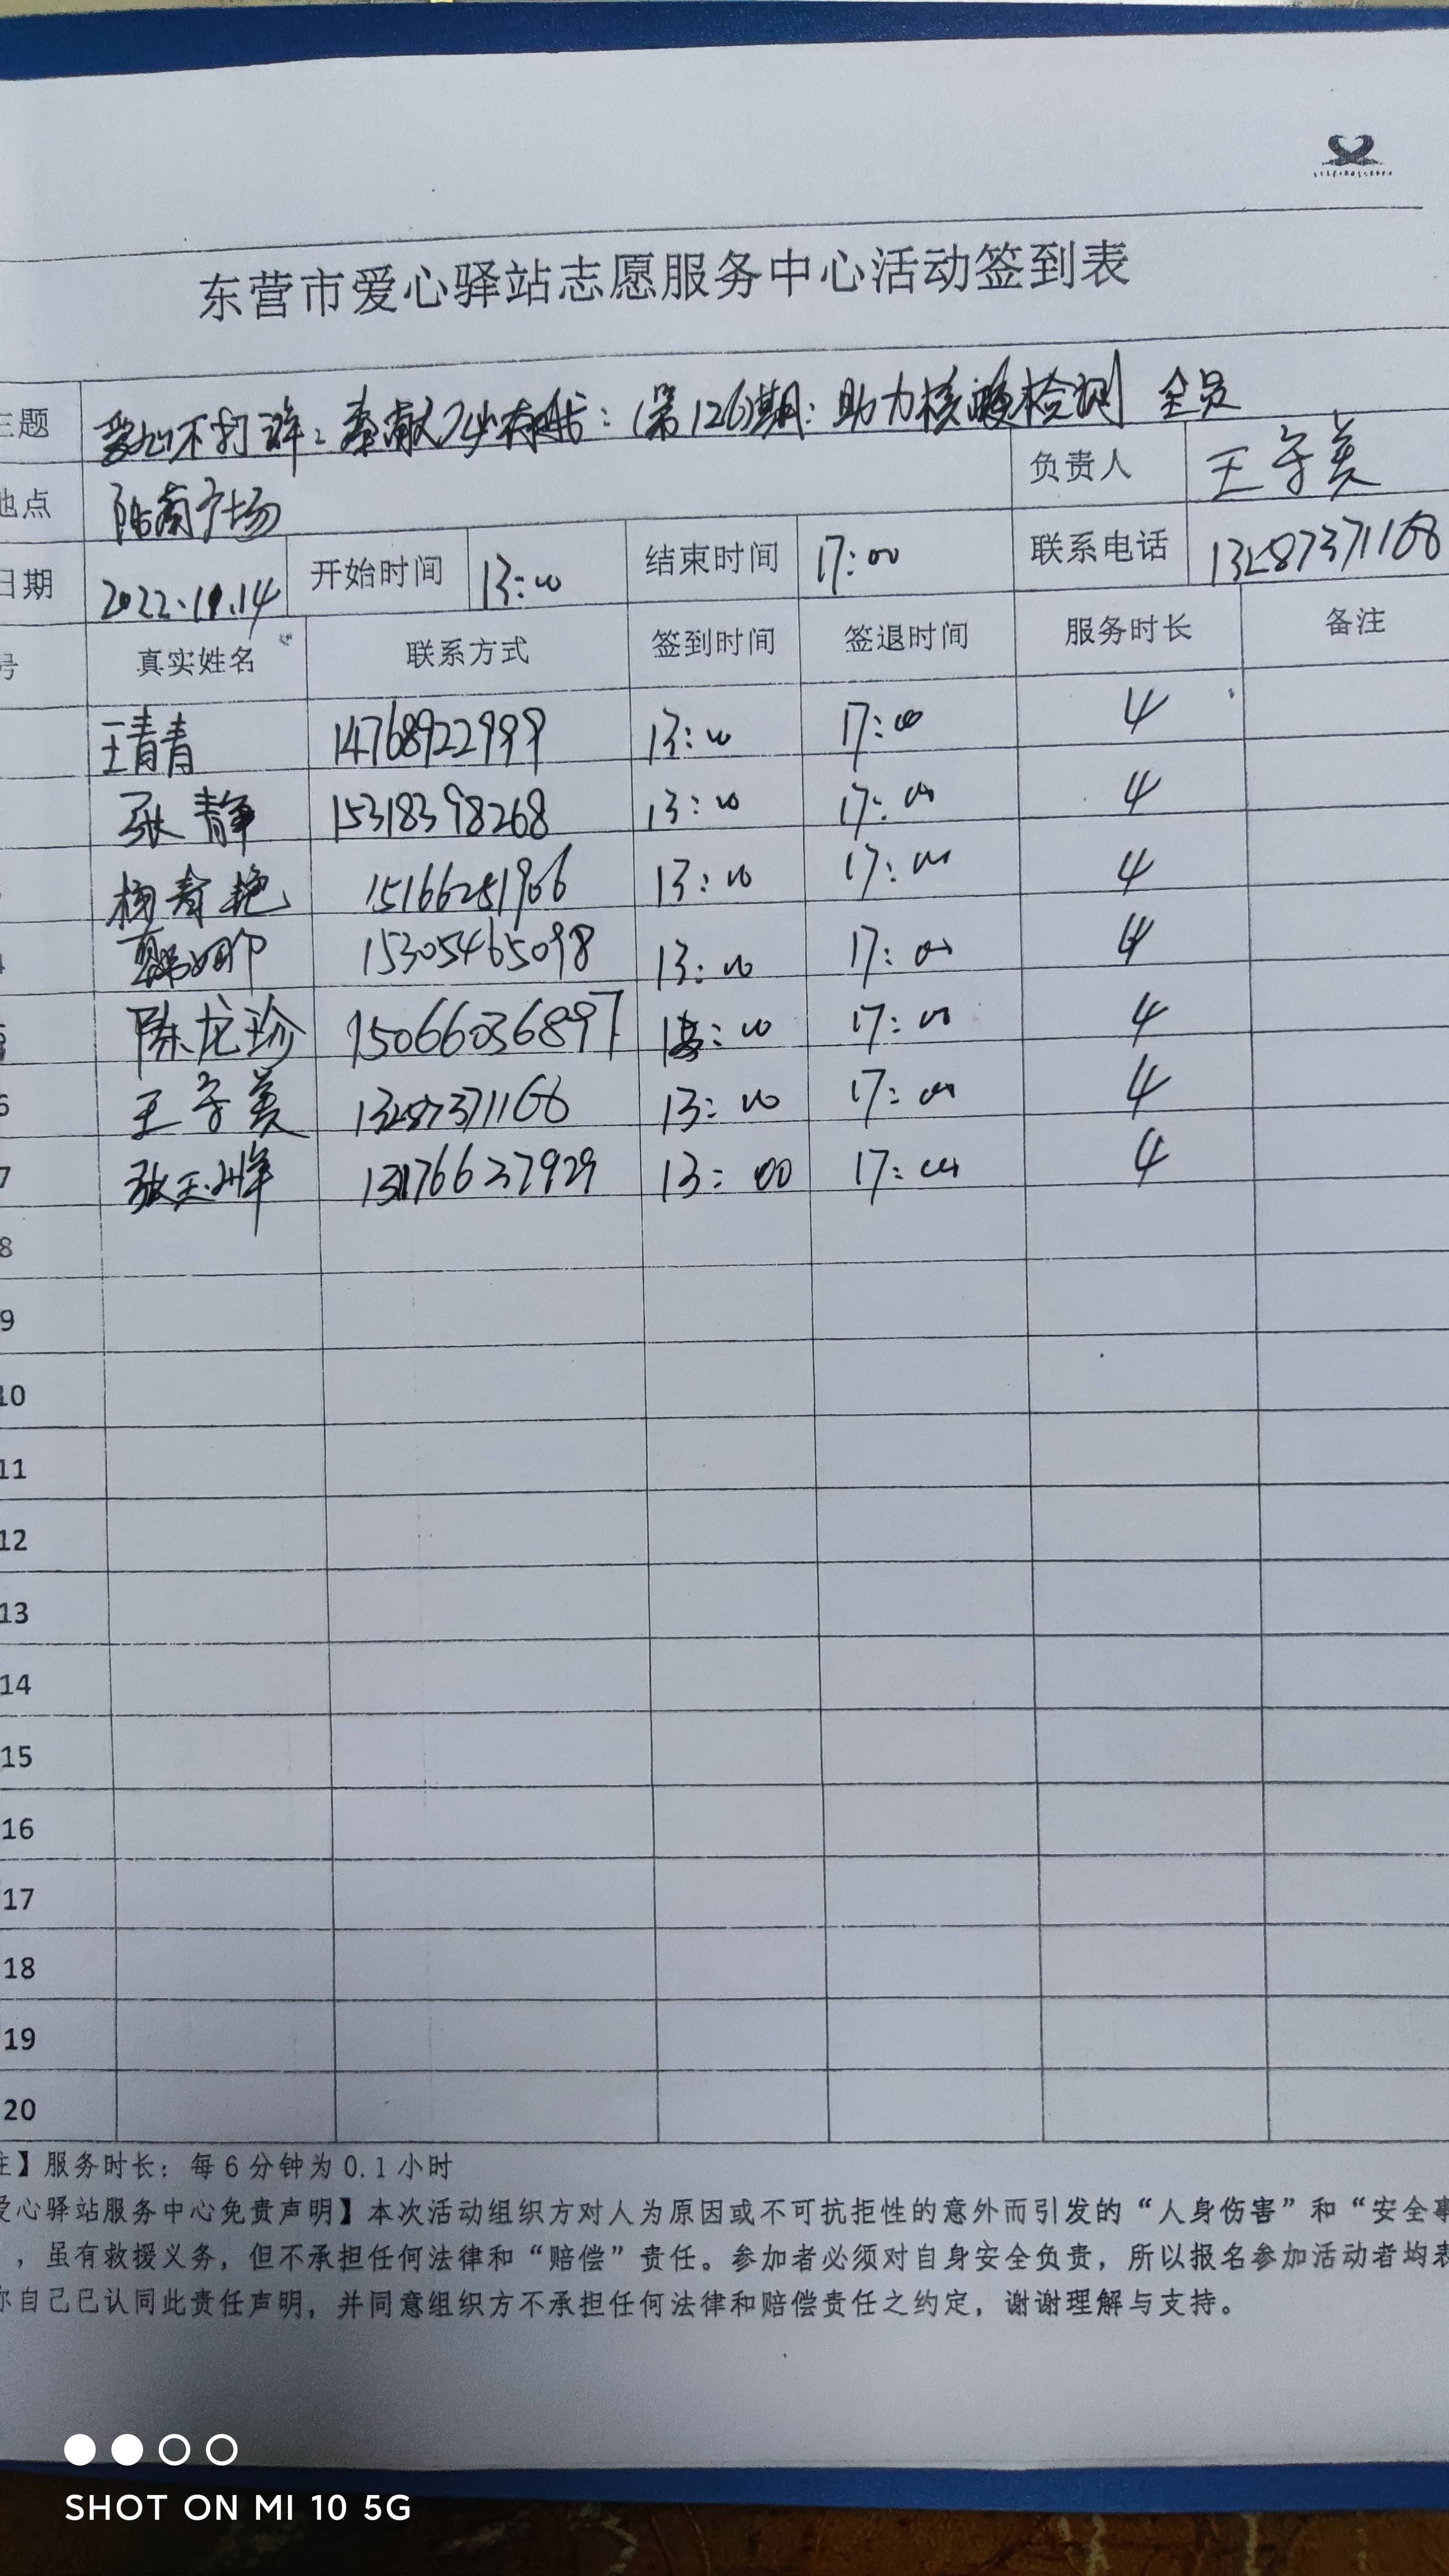 东营市爱心驿站志愿服务中心活动签到表
主题 爱心不打烊：奉献不少有我：(第126)期：助力核酸检测 全员
地点 陆南广场 负责人 王守美
日期 2022.10.14 开始时间 13:00 结束时间 17:00 联系电话 13287371168
号 真实姓名 联系方式 签到时间 签退时间 服务时长 备注
王青青 14768922999 13:00 17:00 4
张静 15318398268 13:00 17:00 4
杨青艳 15166251906 13:00 17:00 4
4 15305465098 13:00 17:00 4
5 陈龙珍 15066036897 13:00 17:00 4
6 王守美 13287371168 13:00 17:00 4
7 张天 13176627929 13:00 17:00 4
8
9
10
11
12
13
14
15
16
17
18
19
20
注】服务时长：每6分钟为0.1小时
爱心驿站服务中心免责声明】本次活动组织方对人为原因或不可抗拒性的意外而引发的“人身伤害”和“安全事
，虽有救援义务，但不承担任何法律和“赔偿”责任。参加者必须对自身安全负责，所以报名参加活动者均表
你自己已认同此责任声明，并同意组织方不承担任何法律和赔偿责任之约定，谢谢理解与支持。
SHOT ON MI 10 5G